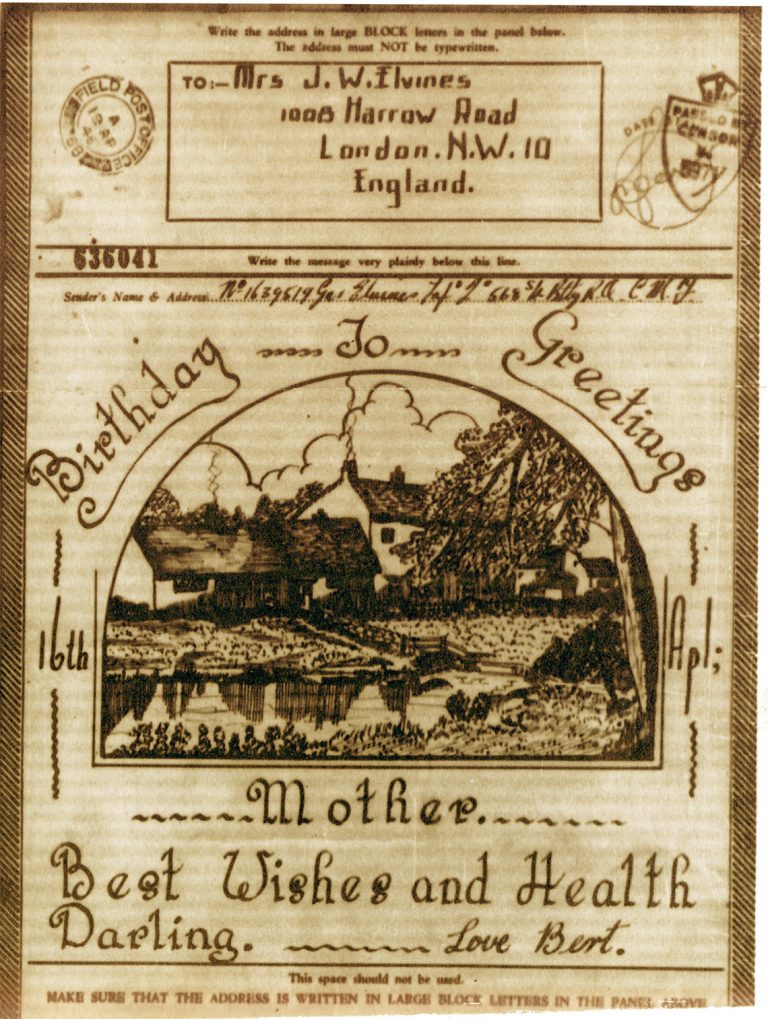 Write the address in large BLOCK letters in the panel below.
The address must NOT be typewritten.
FIELD POST OFFICE
4
19 AP
TO:- Mrs J. W. Elvines
1008 Harrow Road
London. N.W. 10
England.
DATE
PASSED BY
CENSOR
636041
Write the message very plainly below this line.
Sender's Name & Address No 1639519 Gnr Elvines C M F
Birthday To Greetings
16th Apl;
Mother.
Best Wishes and Health
Darling. Love Bert.
This space should not be used.
MAKE SURE THAT THE ADDRESS IS WRITTEN IN LARGE BLOCK LETTERS IN THE PANEL ABOVE